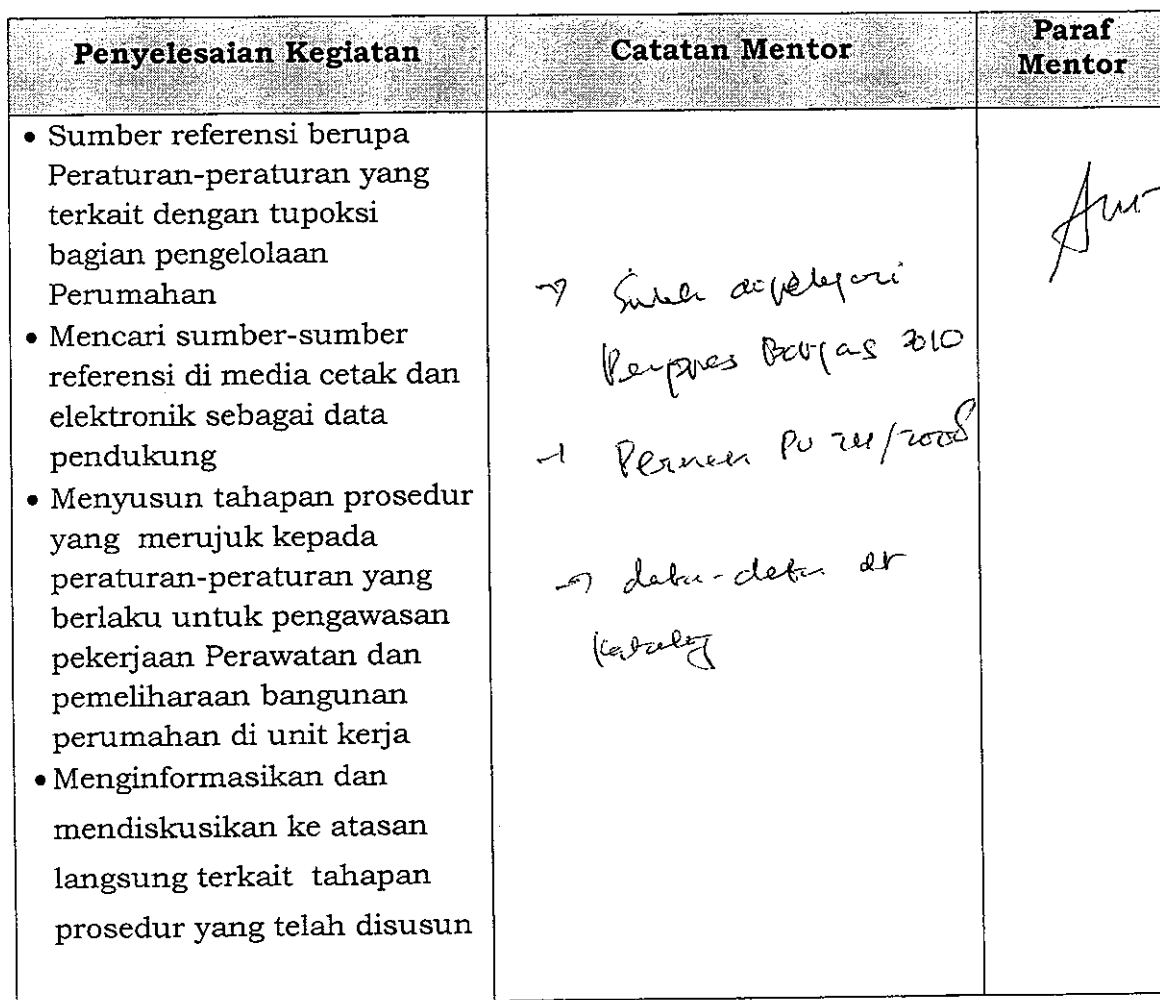 Penyelesaian Kegiatan
Catatan Mentor
Paraf
Mentor
• Sumber referensi berupa
Peraturan-peraturan yang
terkait dengan tupoksi
bagian pengelolaan
Perumahan
• Mencari sumber-sumber
referensi di media cetak dan
elektronik sebagai data
pendukung
• Menyusun tahapan prosedur
yang merujuk kepada
peraturan-peraturan yang
berlaku untuk pengawasan
pekerjaan Perawatan dan
pemeliharaan bangunan
perumahan di unit kerja
• Menginformasikan dan
mendiskusikan ke atasan
langsung terkait tahapan
prosedur yang telah disusun
→ Sudah dipelajari
Perpres 2010
→ Permen PU /2008
→ data-data
katalog